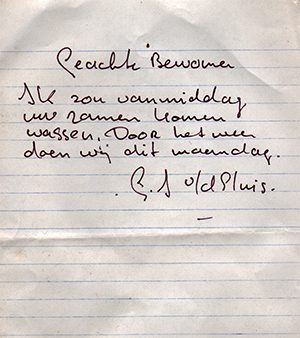 Geachte Bewoner
Ik zou vanmiddag
uw ramen komen
wassen. Door het weer
doen wij dit maandag.
G. S v/d Sluis.